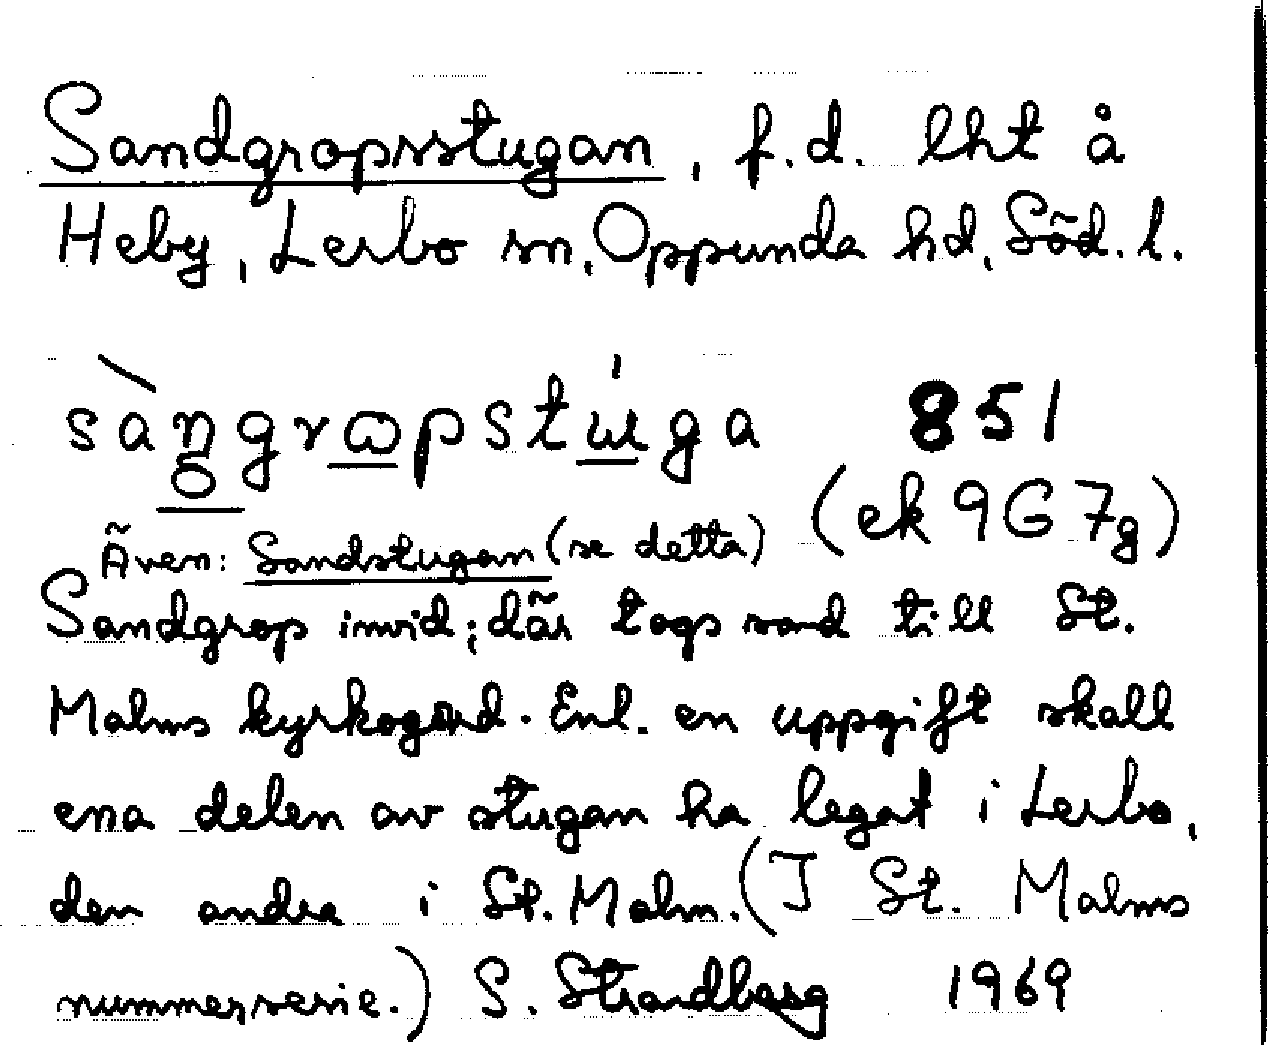 Sandgropsstugan, f.d. lht å
Heby, Lerbo sn, Oppunda hd, Söd. l.
sàŋgrɷpstɯ́ga 851
(ek 9G 7g)
Även: Sandstugan (se detta)
Sandgrop invid; där togs sand till St.
Malms kyrkogård. Enl. en uppgift skall
ena delen av stugan ha legat i Lerbo,
den andra i St. Malm. (I St. Malms
nummerserie.) S. Strandberg 1969